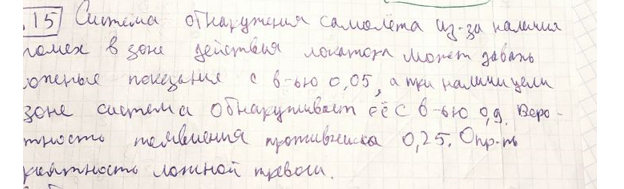 .15 Система обнаружения самолёта из-за наличия
помех в зоне действия локатора может давать
ложные показания с в-ью 0,05, а при наличии цели
зоне система обнаруживает её с в-ью 0,9. Веро-
тность появления противника 0,25. Опр-ть
роятность ложной тревоги.